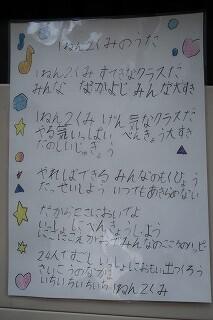 1ねん2くみのうた
1ねん2くみ すてきなクラスだ
みんな なかよし みんな大すき
1ねん2くみ げん気なクラスだ
やる気いっぱい べんきょう大すき
たのしいじゅぎょう
やればできる みんなのもくひょう
だいせいよう いつもあきらめない
だからここにおいでよ
いっしょにべんきょうしよう
にこにこえがおで みんなのこころが
24人ですごし いっしょにおもい出つくろう
さいこうのなかま
いちいちいちいち1ねん2くみ